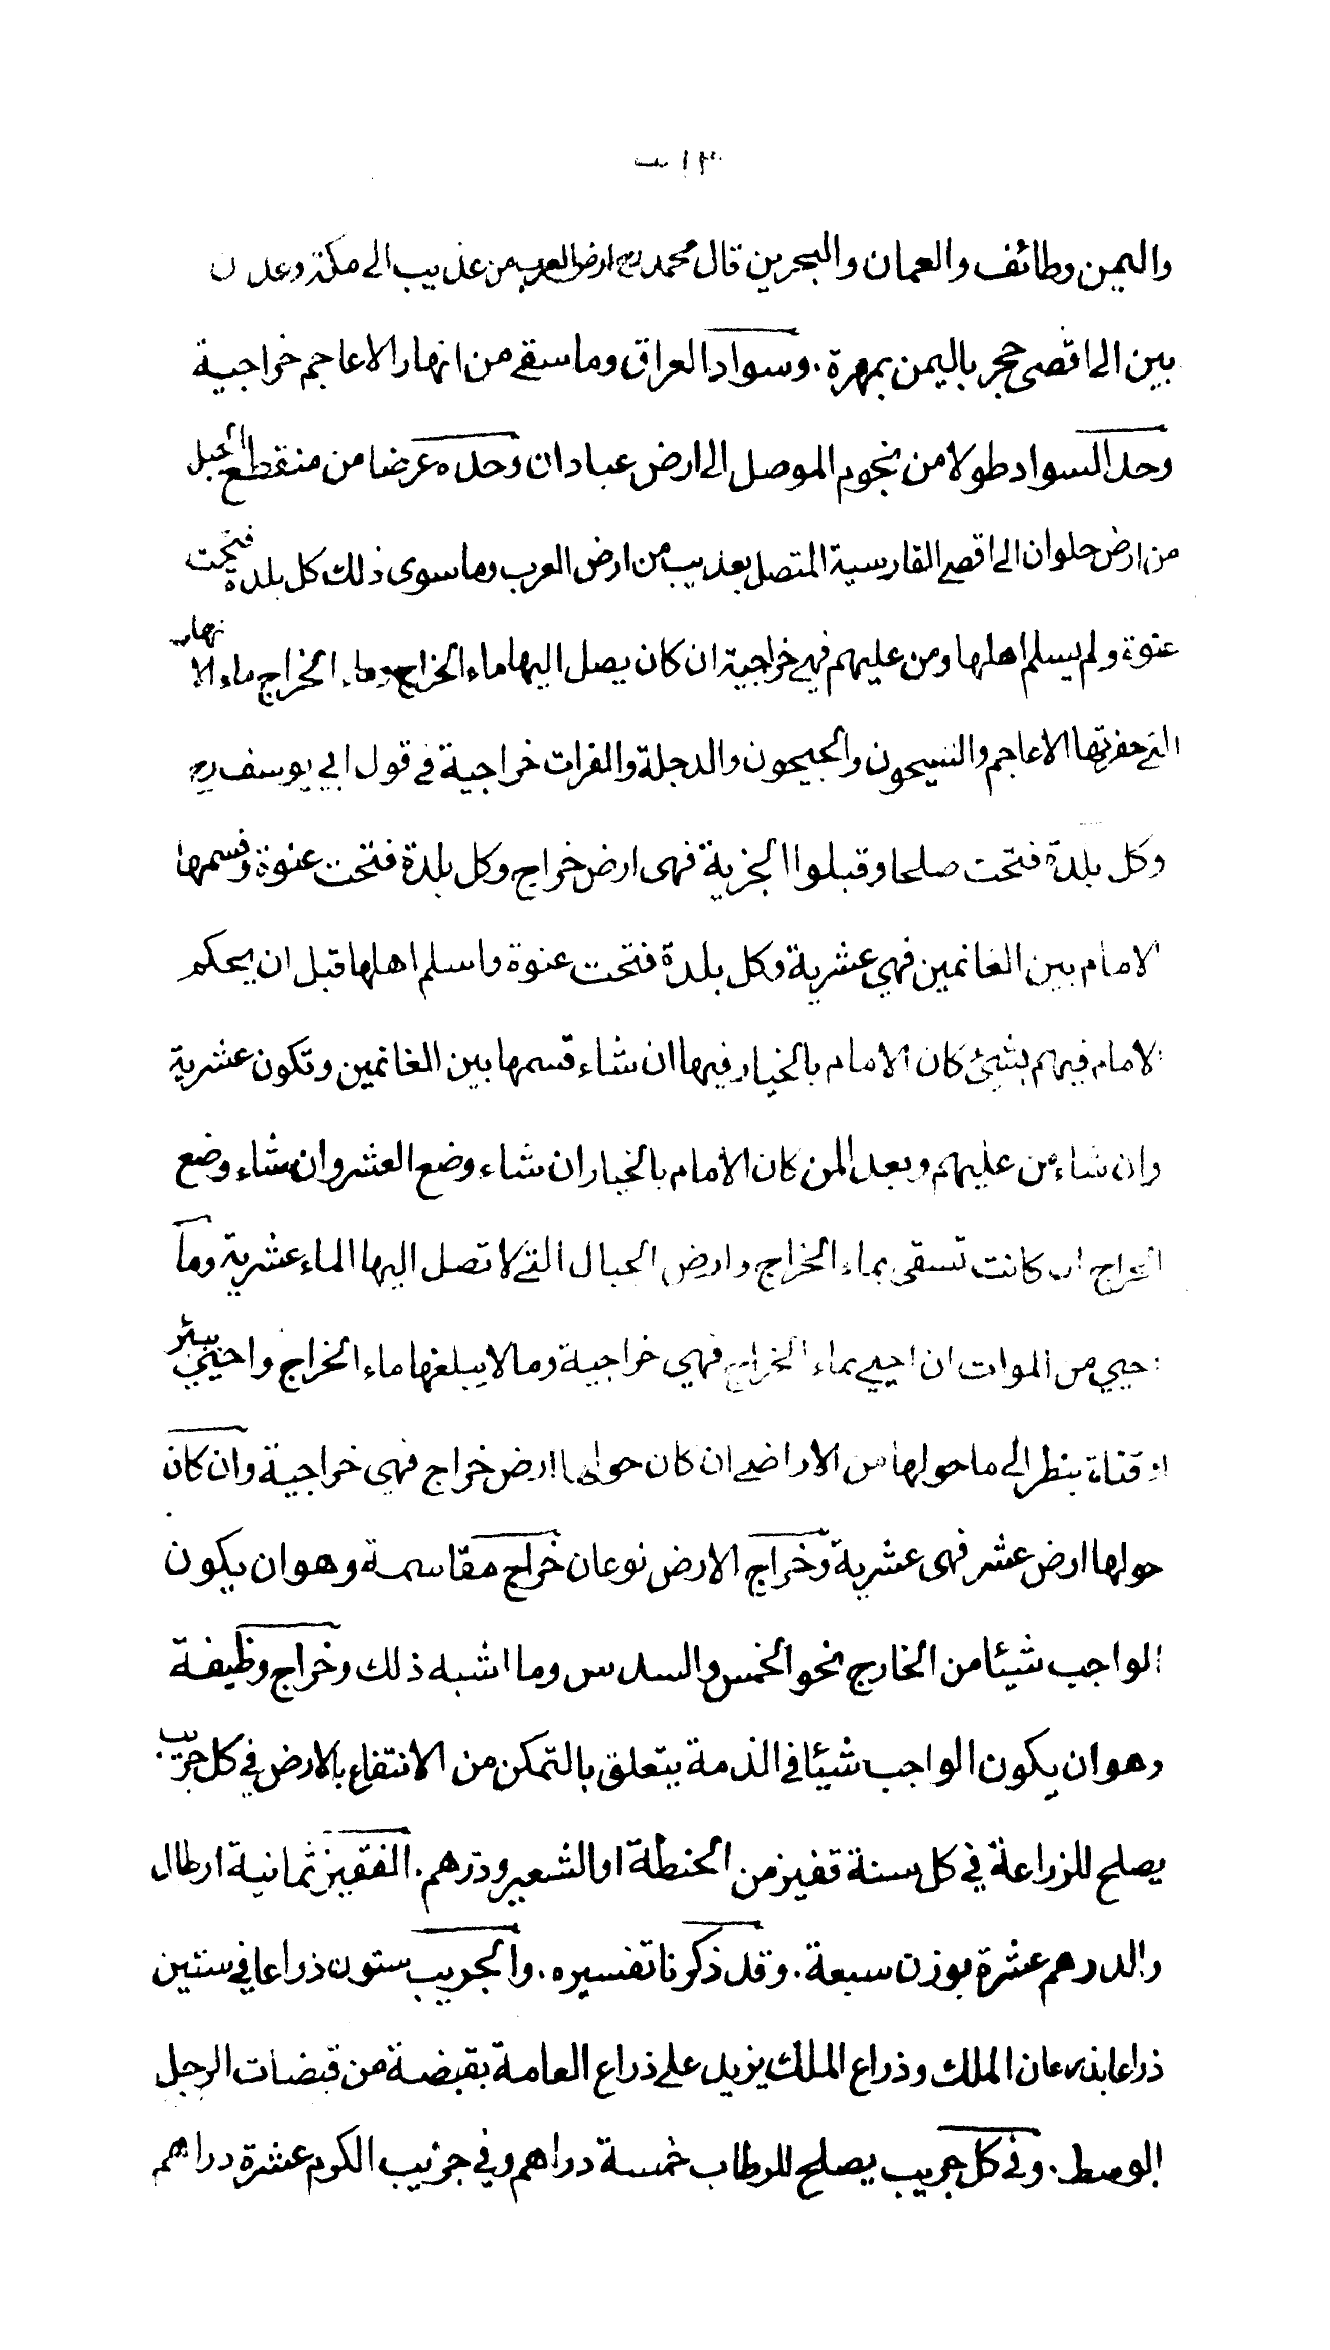 ١٣ ب
واليمن وطائف والعمان والبحرين قال محمد رح ارض العرب من عذيب الى مكة وعدن
بين الى اقصى حجر باليمن بمهرة . وسواد العراق وما سقي من انهار الاعاجم خراجية
وحد السواد طولا من تخوم الموصل الى ارض عبادان وحده عرضا من منقطع الجبل
من ارض حلوان الى اقصى القادسية المتصل بعذيب من ارض العرب وما سوى ذلك كل بلدة فتحت
عنوة ولم يسلم اهلها ومن عليهم فهي خراجية ان كان يصل اليها ماء الخراج وماء الخراج ماء الانهار
التي حفرتها الاعاجم والسيحون والجيحون والدجلة والفرات خراجية في قول ابي يوسف رح
وكل بلدة فتحت صلحا وقبلوا الجزية فهى ارض خراج وكل بلدة فتحت عنوة وقسمها
الامام بين الغانمين فهي عشرية وكل بلدة فتحت عنوة واسلم اهلها قبل ان يحكم
الامام فيهم بشيئ كان الامام بالخيار فيها ان شاء قسمها بين الغانمين وتكون عشرية
وان شاء من عليهم وبعد المن كان الامام بالخيار ان شاء وضع العشر وان شاء وضع
الخراج ان كانت تسقى بماء الخراج وارض الجبال التي لا تصل اليها الماء عشرية وما
احيي من الموات ان احيي بماء الخراج فهي خراجية وما لا يبلغها ماء الخراج واحيي ببئر
او قناة ينظر الى ما حولها من الاراضي ان كان حولها ارض خراج فهي خراجية وان كان
حولها ارض عشر فهى عشرية وخراج الارض نوعان خراج مقاسمة وهو ان يكون
الواجب شيئا من الخارج نحو الخمس والسدس وما اشبه ذلك وخراج وظيفة
وهو ان يكون الواجب شيئا في الذمة يتعلق بالتمكن من الانتفاع بالارض في كل جريب
يصلح للزراعة في كل سنة قفيز من الحنطة او الشعير ودرهم . القفيز ثمانية ارطال
والدرهم عشرة بوزن سبعة . وقد ذكرنا تفسيره . والجريب ستون ذراعا في ستين
ذراعا بذرعان الملك وذراع الملك يزيد على ذراع العامة بقبضة من قبضات الرجل
الوسط . وفي كل جريب يصلح للرطاب خمسة دراهم وفي جريب الكرم عشرة دراهم